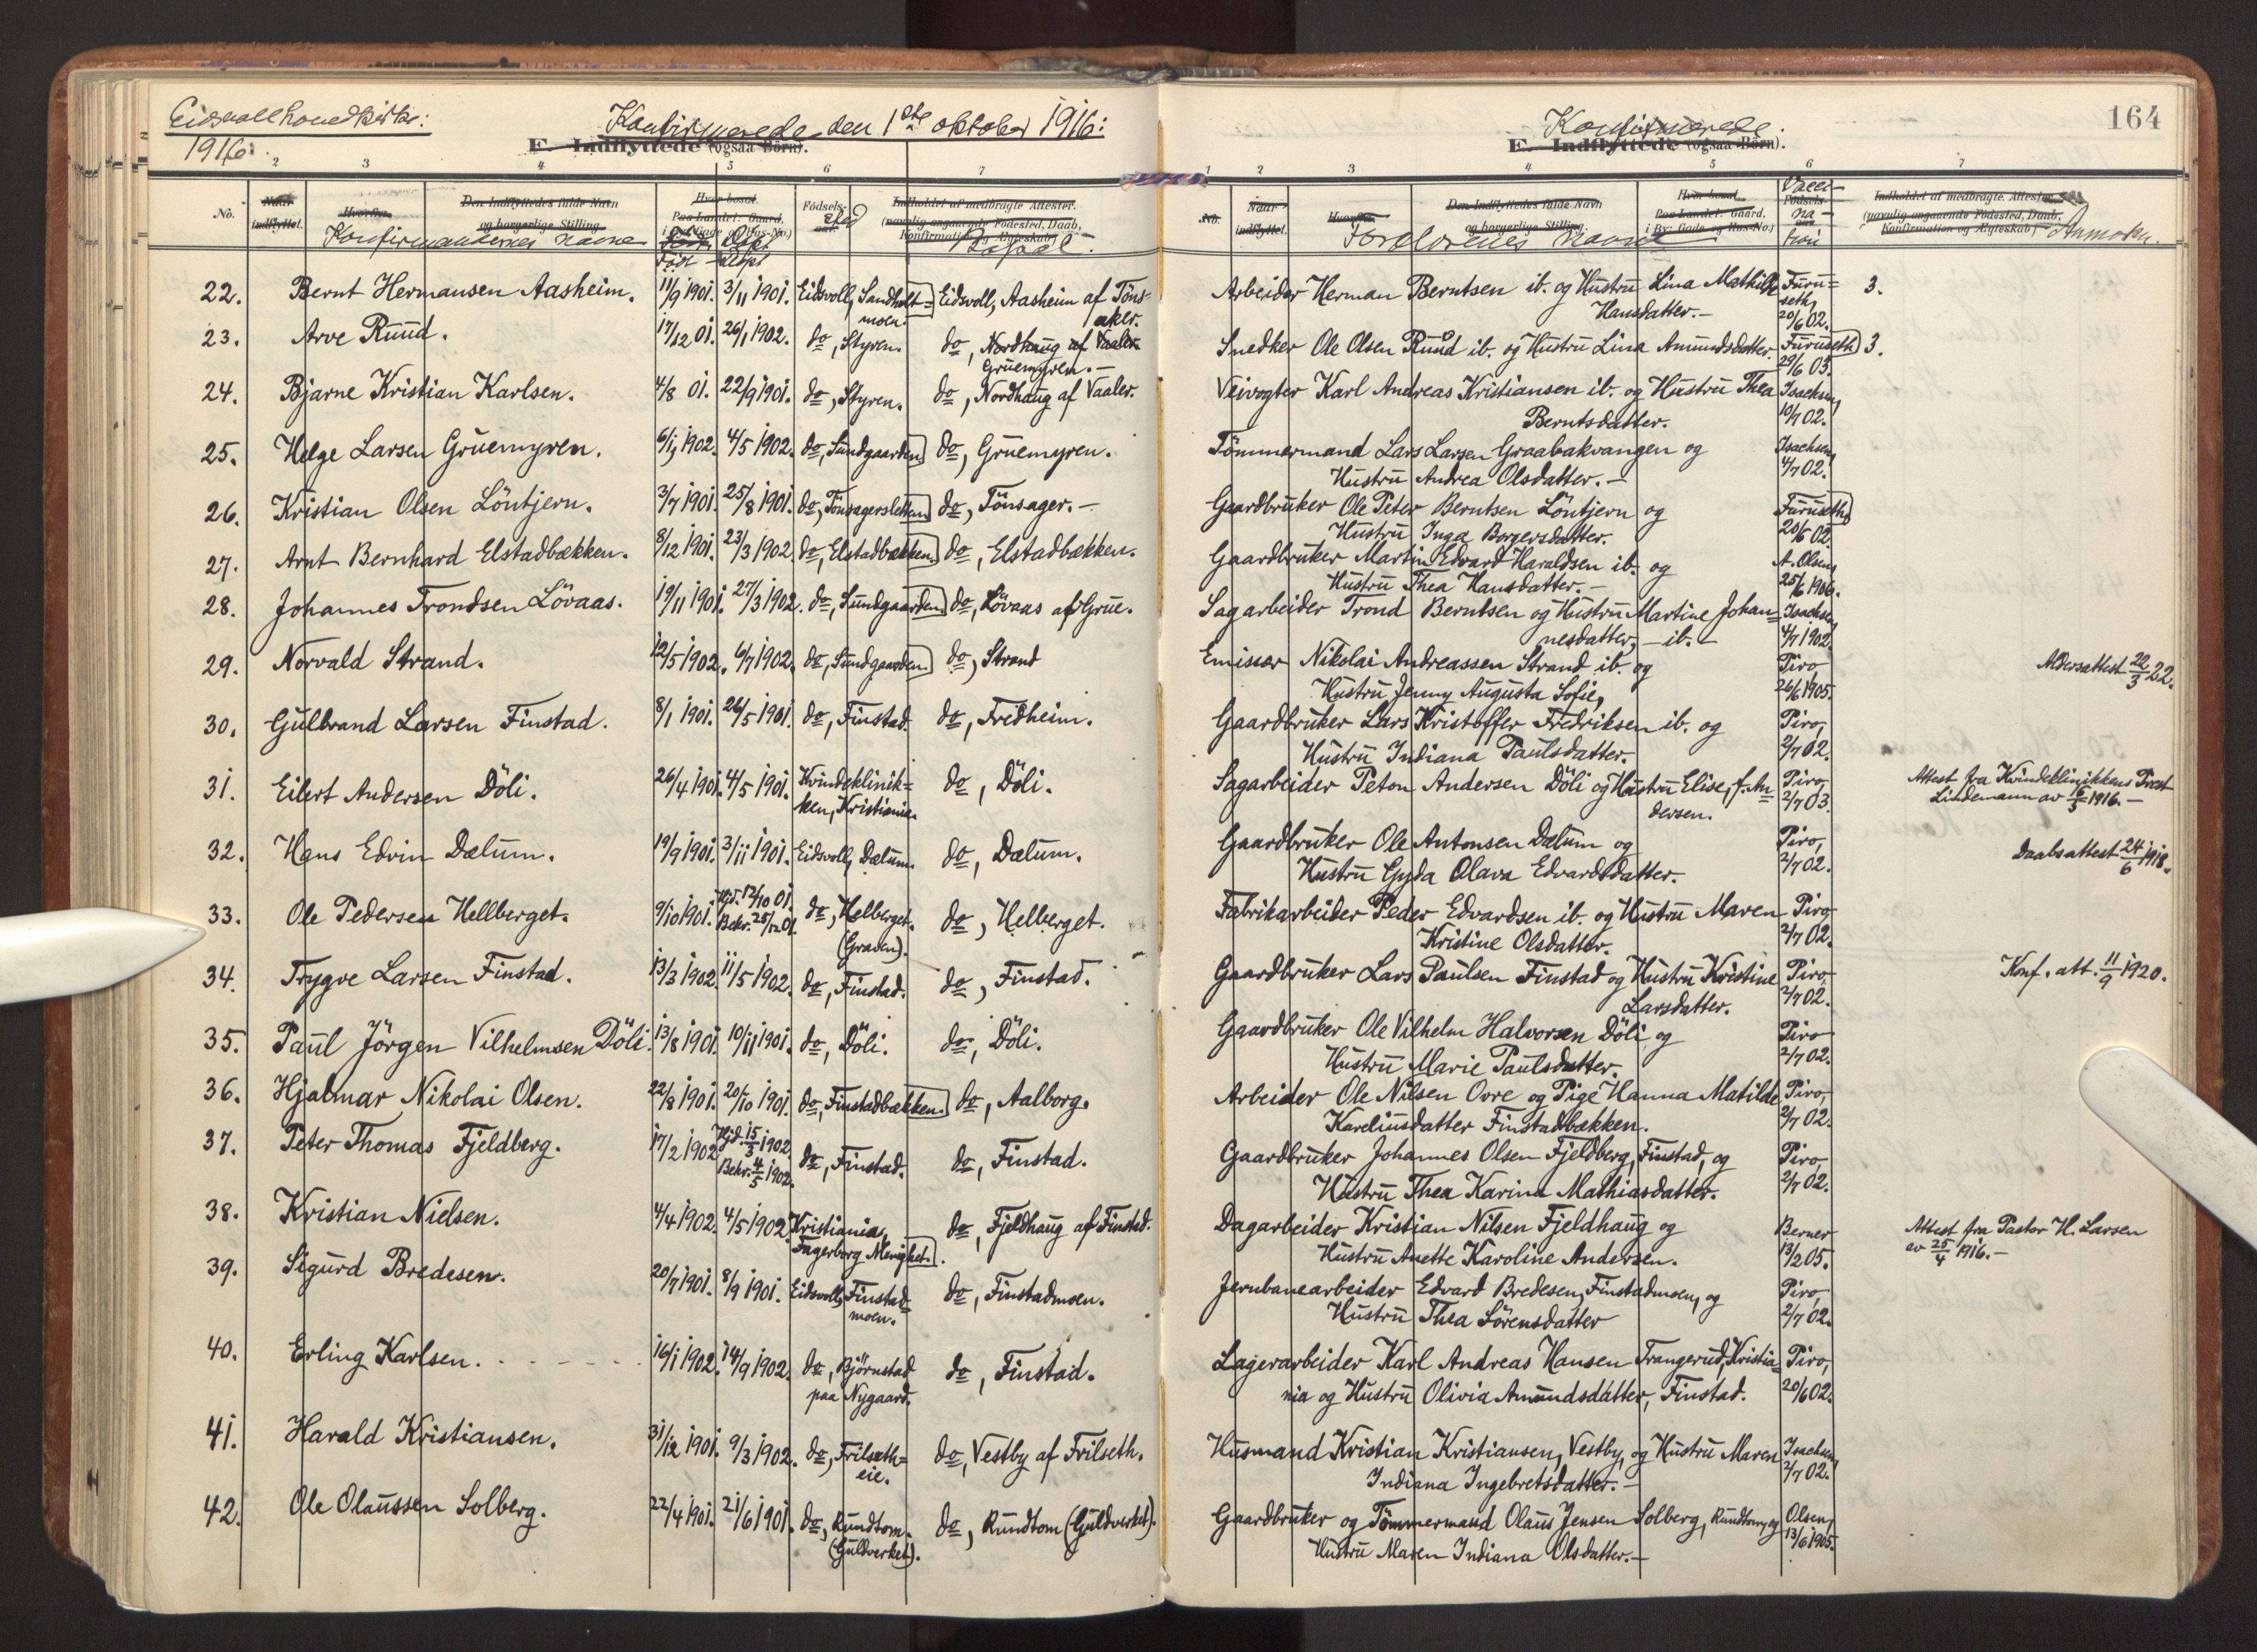 Eidsvoll hovedkirke:
1916.
Konfirmerede den 1ste oktober 1916:
E. Indflyttede (ogsaa Börn).
2 3 4 5 6 7
No. Naar indflyttet. Hvorfra. Den Indflyttedes fulde Navn og borgerlige Stilling. Hvor bosat. Paa Landet: Gaard. Födsels- Indholdet af medbragte Attester.
(navnlig angaaende Födested, Daab, Konfirmation og Ægteskab)
Konfirmandernes navne Født Døpt sted Bopæl.
22. Bernt Hermansen Aasheim. 11/9 1901. 3/11 1901. Eidsvoll, Sandholt= Eidsvoll, Aasheim af Töns-
moen. aker.
23. Arve Ruud. 17/12 01. 26/1 1902. do, Styren. do, Nordhaug af Vaaler.
Gruemyren.-
24. Bjarne Kristian Karlsen. 4/8 01. 22/9 1901. do, Styren. do, Nordhaug af Vaaler.
25. Helge Larsen Gruemyren. 6/1 1902. 4/5 1902. do, Sundgaarden do, Gruemyren.
26. Kristian Olsen Löntjern. 3/7 1901. 25/8 1901. do, Tönsagersletten do, Tönsager.-
27. Arnt Bernhard Elstadbækken. 8/12 1901. 23/3 1902. do, Elstadbækken. do, Elstadbækken.
28. Johannes Trondsen Lövaas. 19/11 1901. 27/3 1902. do, Sundgaarden do, Lövaas af Grue.
29. Norvald Strand. 12/5 1902. 6/7 1902. do, Sundgaarden do, Strand
30. Gulbrand Larsen Finstad. 8/1 1901. 26/5 1901. do, Finstad. do, Fredheim.
31. Eilert Andersen Döli. 26/4 1901. 4/5 1901. Kvindeklinik= do, Döli.
ken, Kristiania.
32. Hans Edvin Dælum. 19/9 1901. 3/11 1901. Eidsvoll, Dælum. do, Dælum.
33. Ole Pedersen Hellberget. 9/10 1901. Hjd. 12/10 01. do, Helberget. do, Helberget.
Bekr. 25/12 01. (Graven).
34. Trygve Larsen Finstad. 13/3 1902. 11/5 1902. do, Finstad. do, Finstad.
35. Paul Jörgen Vilhelmsen Döli. 13/8 1901. 10/11 1901. do, Döli. do, Döli.
36. Hjalmar Nikolai Olsen. 22/8 1901. 20/10 1901. do, Finstadbækken. do, Aalborg.
37. Peter Thomas Fjeldberg. 17/2 1902. Hjd. 15/3 1902. do, Finstad. do, Finstad.
Bekr. 4/5 1902.
38. Kristian Nielsen. 4/4 1902. 4/5 1902. Kristiania, do, Fjeldhaug af Finstad.
Fagerborg Menighet.
39. Sigurd Bredesen. 20/7 1901. 8/9 1901. Eidsvoll, Finstad= do, Finstadmoen.
moen.
40. Erling Karlsen. 16/1 1902. 14/9 1902. do, Björnstad do, Finstad.
paa Nygaard.
41. Harald Kristiansen. 31/12 1901. 9/3 1902. do, Frilseth= do, Vestby af Frilseth.
eie.
42. Ole Olaussen Solberg. 22/4 1901. 21/6 1901. do, Rundtom. do, Rundtom (Guldverket).
(Guldverket).
164
Konfirmerede.
E. Indflyttede (ogsaa Börn).
1 2 3 4 5 6 7
No. Naar indflyttet. Hvorfra. Den Indflyttedes fulde Navn og borgerlige Stilling. Hvor bosat. Paa Landet: Gaard. i By: Gade og Hus-No.) Födsels- Indholdet af medbragte Attester.
(navnlig angaaende Födested, Daab, Konfirmation og Ægteskab)
Forældrenes navne Vacci-na-tion Anmerkn.
Arbeider Herman Berntsen ib. og Hustru Lina Mathilde Furu= 3.
Hansdatter.- seth, 20/6 02.
Snedker Ole Olsen Ruud ib. og Hustru Lina Amundsdatter. Furuseth 3.
29/6 03.
Veivogter Karl Andreas Kristiansen ib. og Hustru Thea Isachsen,
Berntsdatter. 10/7 02.
Tömmermand Lars Larsen Graabakvangen og Isachsen,
Hustru Andrea Olsdatter.- 4/7 02.
Gaardbruker Ole Peter Berntsen Löntjern og Furuseth,
Hustru Inga Borgersdatter. 20/6 02.
Gaardbruker Martin Edvard Haraldsen ib. og A. Olsen,
Hustru Thea Hansdatter.- 25/6 1906.
Sagarbeider Trond Berntsen og Hustru Martine Johan= Isachsen,
nesdatter,- ib.- 4/7 1902.
Emissær Nikolai Andreassen Strand ib. og Piro, Aldersattest 22/3 22.
Hustru Jenny Augusta Sofie, 26/6 1905.
Gaardbruker Lars Kristoffer Fredriksen ib. og Piro,
Hustru Indiana Paulsdatter. 2/7 02.
Sagarbeider Peton Andersen Döli og Hustru Elise, f. An= Piro, Attest fra Kvindeklinikkens Prest
dersen. 2/7 03. Lindemann av 16/5 1916.-
Gaardbruker Ole Antonsen Dælum og Piro, Daabsattest 24/6 1918.
Hustru Gyda Olava Edvardsdatter. 2/7 02.
Fabrikarbeider Peder Edvardsen ib. og Hustru Maren Piro
Kristine Olsdatter. 2/7 02.
Gaardbruker Lars Paulsen Finstad og Hustru Kristine Piro, Konf. att. 11/9 1920.
Larsdatter. 2/7 02.
Gaardbruker Ole Vilhelm Halvorsen Döli og Piro
Hustru Marie Paulsdatter. 2/7 02.
Arbeider Ole Nilsen Ovre og Pige Hanna Matilde Piro,
Kareliusdatter Finstadbækken. 2/7 02.
Gaardbruker Johannes Olsen Fjeldberg, Finstad, og Piro,
Hustru Thea Karina Mathiasdatter. 2/7 02.
Dagarbeider Kristian Nilsen Fjeldhaug og Berner Attest fra Pastor H. Larsen
Hustru Anette Karoline Andersen. 13/2 05. av 25/4 1916.-
Jernbanearbeider Edvard Bredesen, Finstadmoen, og Piro,
Hustru Thea Sörensdatter 2/7 02.
Lagerarbeider Karl Andreas Hansen Trangerud, Kristia= Piro,
nia og Hustru Olivia Amundsdatter, Finstad. 20/6 02.
Husmand Kristian Kristiansen, Vestby, og Hustru Maren Isachsen,
Indiana Ingebretsdatter.- 2/7 02.
Gaardbruker og Tömmermand Olaus Jensen Solberg, Rundtom, og Olsen,
Hustru Maren Indiana Olsdatter.- 13/6 1905.